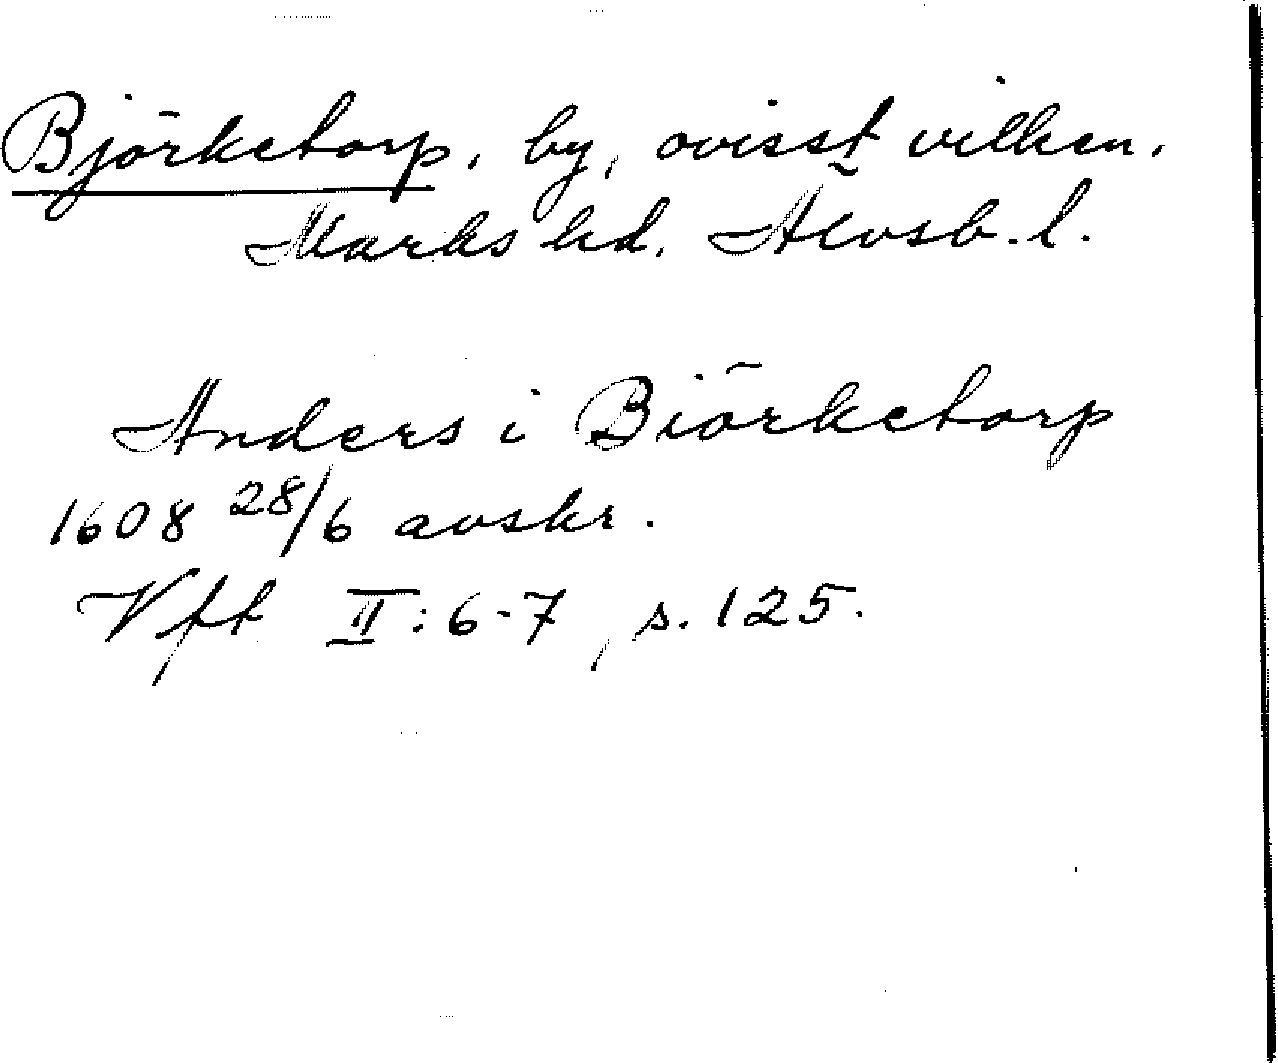 Björketorp, by, ovisst vilken.
Marks hd. Älvsb. l.
Anders i Biörketorp
1608 28/6 avskr.
Vft II: 6-7, s. 125.